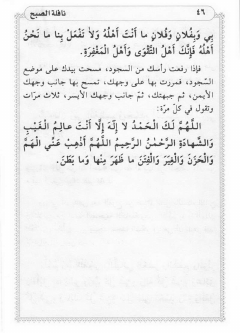 ٤٦
نافلة الصبح
بِي وَبِفُلَانٍ وَفُلَانٍ مَا أَنْتَ أَهْلُهُ وَلاَ تَفْعَلْ بِنَا مَا نَحْنُ
أَهْلُهُ فَإِنَّكَ أَهْلُ التَّقْوَى وَأَهْلُ المَغْفِرَةِ.
فإذا رفعت رأسك من السجود، مسحت بيدك على موضع
السّجود، فمررت بها على وجهك، تمسح بها جانب وجهك
الأيمن، ثم جبهتك، ثمّ جانب وجهك الأيسر، ثلاث مرّات
وتقول في كلّ مرّة:
اللَّهُمَّ لَكَ الْحَمْدُ لا إِلَهَ إِلَّا أَنْتَ عَالِمُ الْغَيْبِ
وَالشَّهَادَةِ الرَّحْمٰنُ الرَّحِيمُ اللَّهُمَّ أَذْهِبْ عَنِّي الْهَمَّ
وَالْحَزَنَ وَالْغِيَرَ وَالْفِتَنَ مَا ظَهَرَ مِنْهَا وَمَا بَطَنَ.